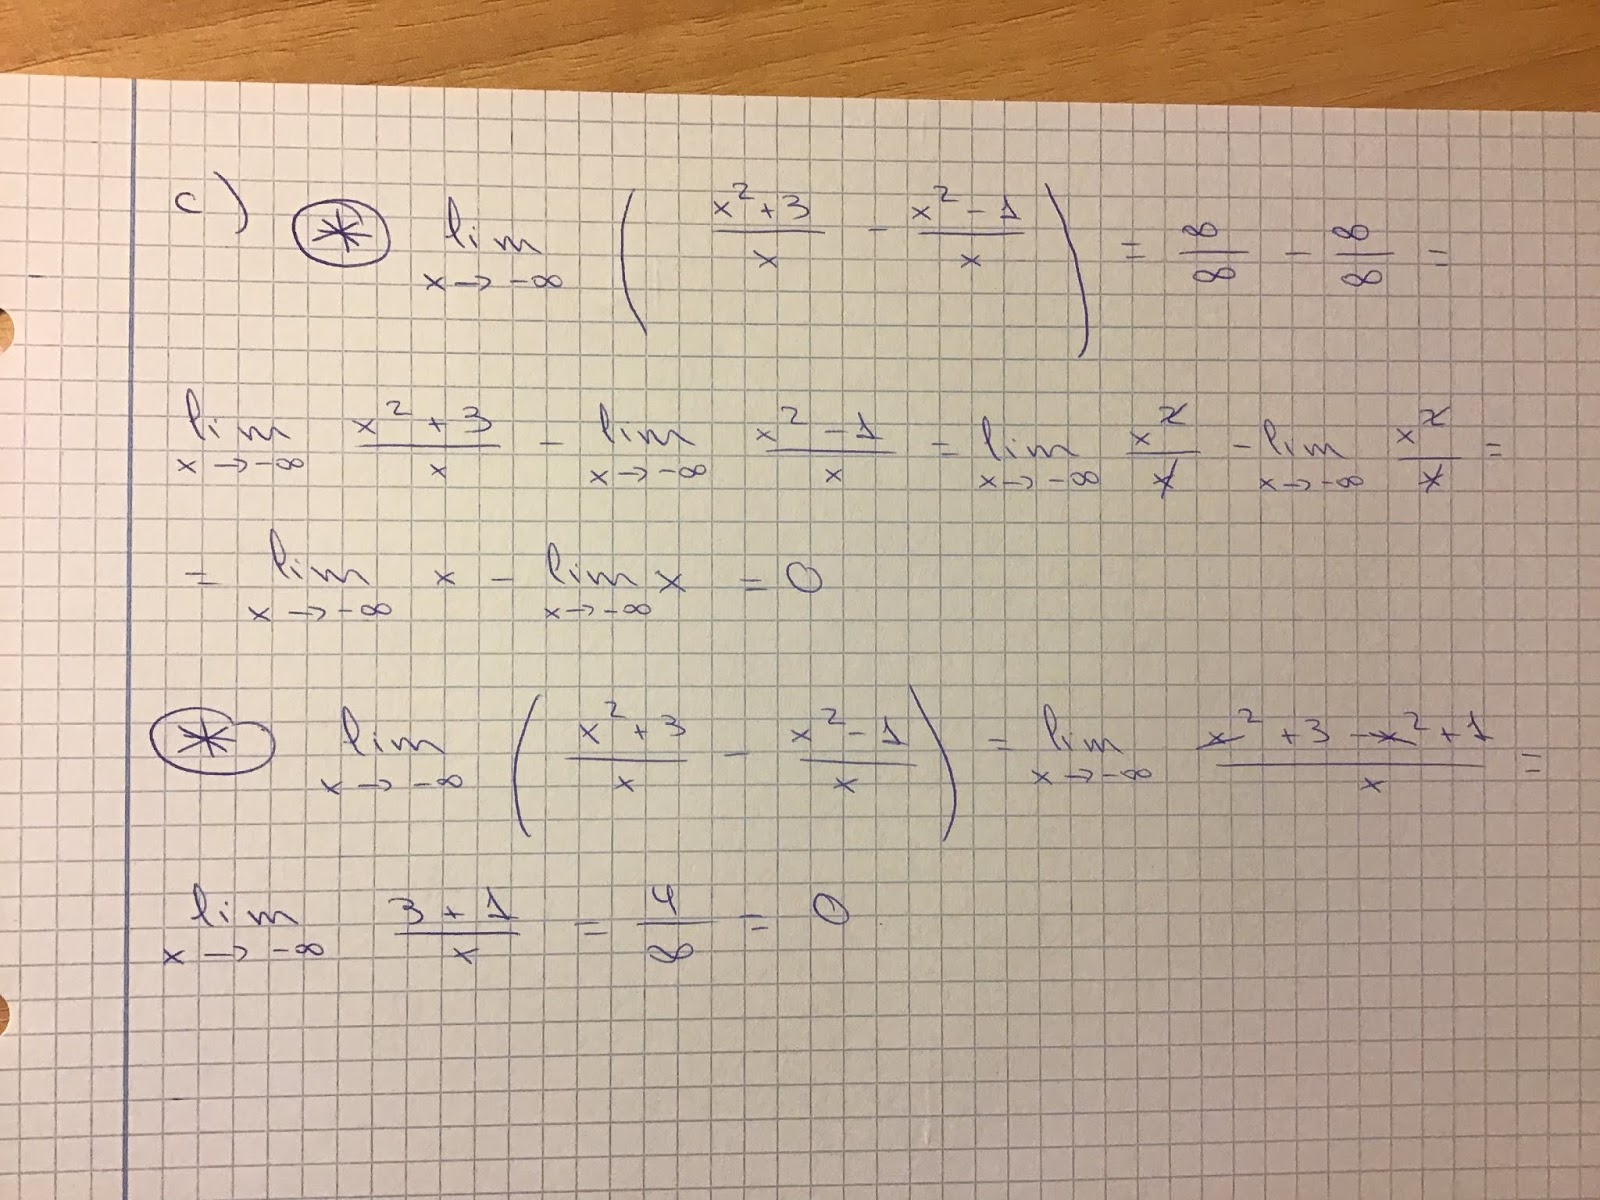 c) * lim x→-∞ ( (x²+3)/x - (x²-1)/x ) = ∞/∞ - ∞/∞ =
lim x→-∞ (x²+3)/x - lim x→-∞ (x²-1)/x = lim x→-∞ x²/x - lim x→-∞ x²/x =
= lim x→-∞ x - lim x→-∞ x = 0
* lim x→-∞ ( (x²+3)/x - (x²-1)/x ) = lim x→-∞ (x²+3-x²+1)/x =
lim x→-∞ (3+1)/x = 4/∞ = 0